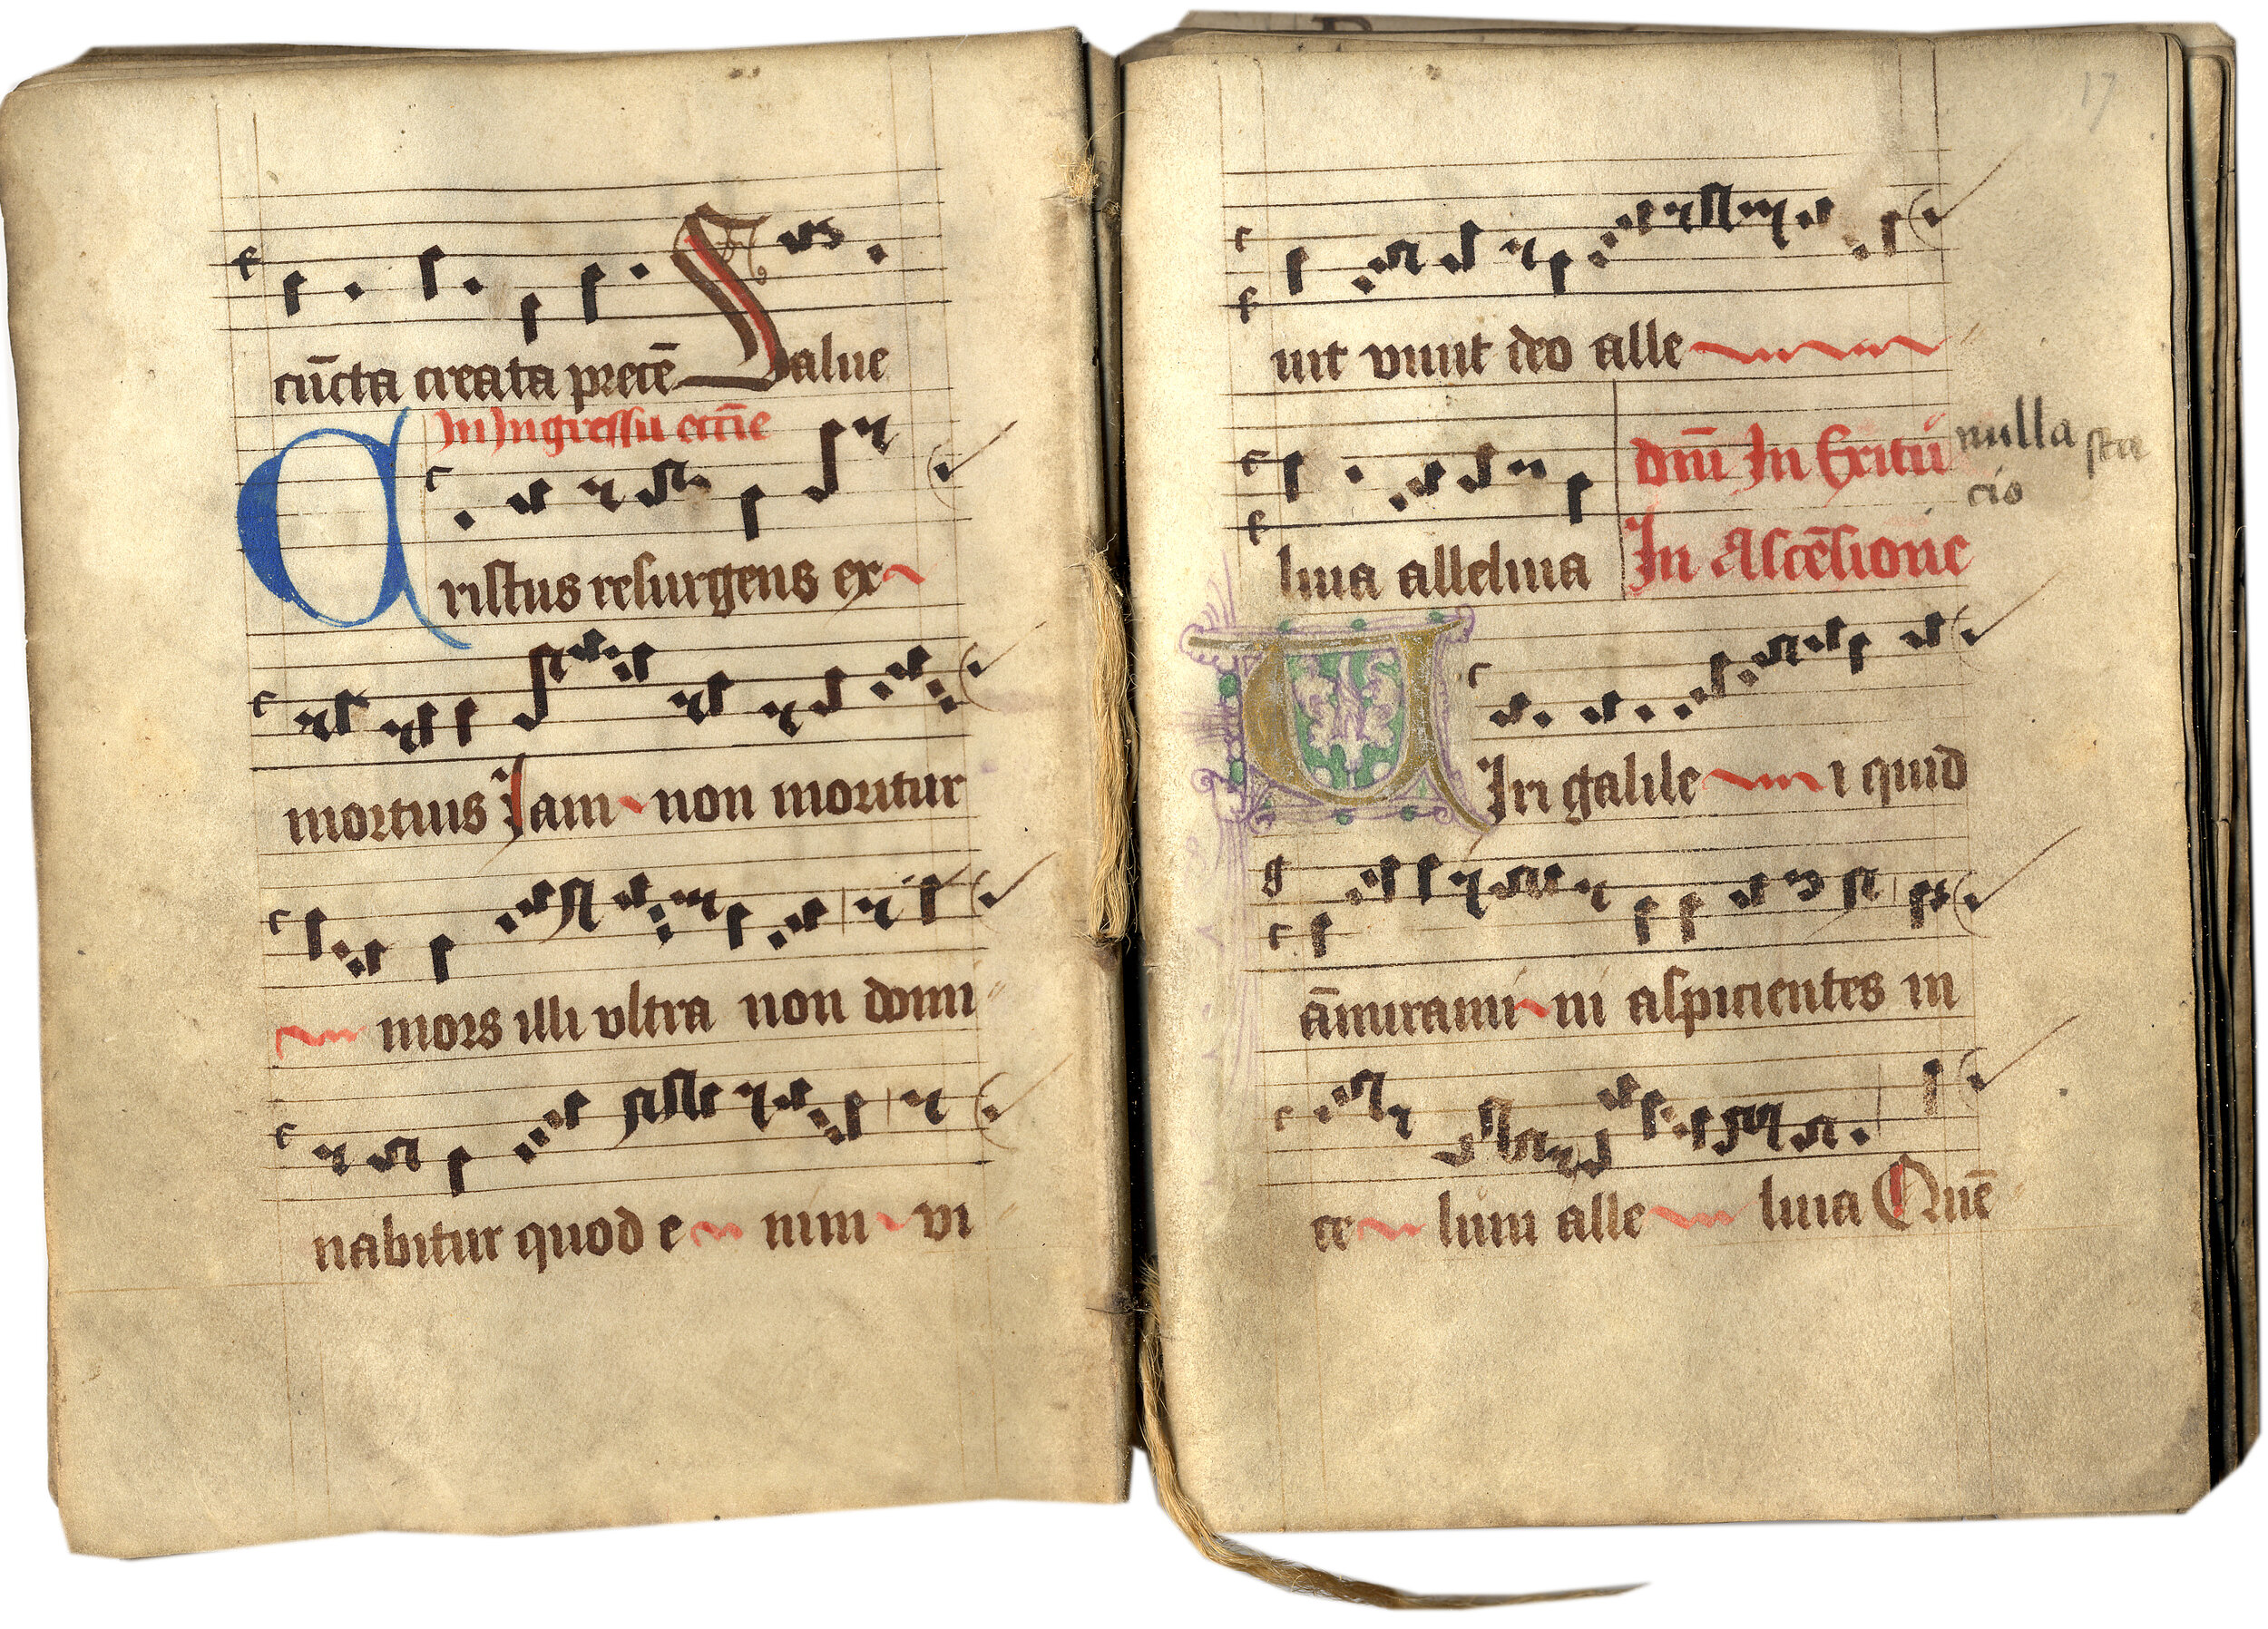 cūcta creata precē Salue
In Ingressu eccīe
Cristus resurgens ex
mortuus Jam non moritur
mors illi vltra non domi
nabitur quod e nim vi
17
uit viuit deo alle
luia alleluia
dm̄ In Exitū
nulla sta
cio
In Ascēsione
Uiri galile i quid
āmirami ni aspicientes in
ce lum alle luia Quē